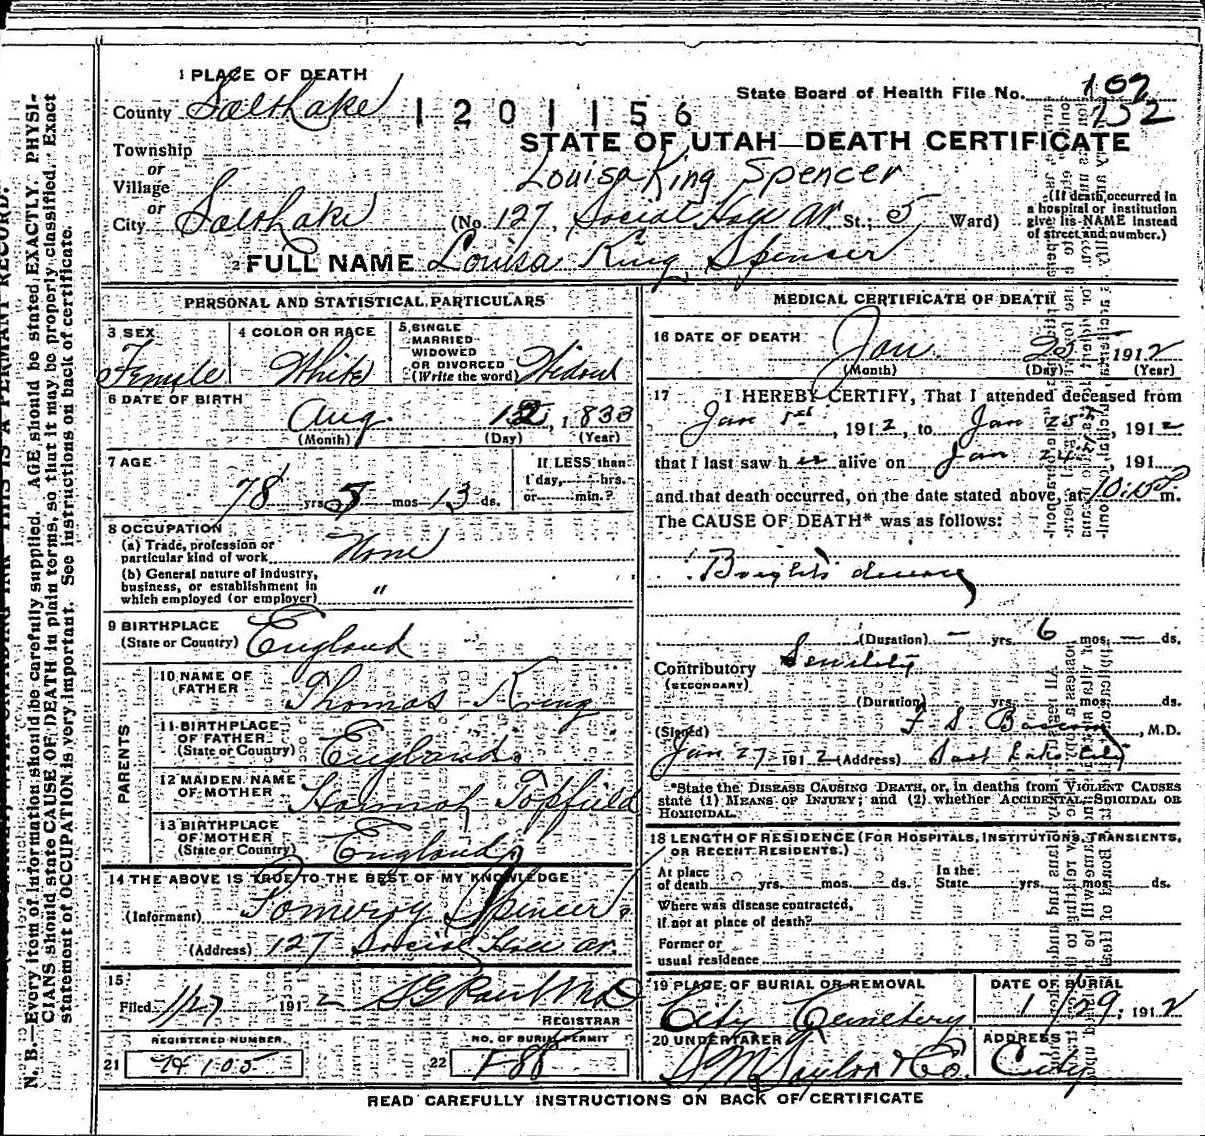 1 PLACE OF DEATH
County Salt Lake 1201156
State Board of Health File No. 107
152
Township
or
Village
or
City Salt Lake
STATE OF UTAH—DEATH CERTIFICATE
Louisa King Spencer
(No. 127, Social Hall av St.; 5 Ward)
(If death occurred in a hospital or institution give its NAME instead of street and number.)
2 FULL NAME Louisa King Spencer
PERSONAL AND STATISTICAL PARTICULARS
3 SEX
Female
4 COLOR OR RACE
White
5 SINGLE
MARRIED
WIDOWED
OR DIVORCED
(Write the word) Widowed
6 DATE OF BIRTH
Aug 12, 1833
(Month) (Day) (Year)
7 AGE
78 yrs 5 mos 13 ds.
If LESS than
1 day, hrs.
or min.?
8 OCCUPATION
(a) Trade, profession or
particular kind of work None
(b) General nature of industry,
business, or establishment in
which employed (or employer) "
9 BIRTHPLACE
(State or Country) England
PARENTS
10 NAME OF
FATHER Thomas King
11 BIRTHPLACE
OF FATHER
(State or Country) England
12 MAIDEN NAME
OF MOTHER Hannah Topfield
13 BIRTHPLACE
OF MOTHER
(State or Country) England
14 THE ABOVE IS TRUE TO THE BEST OF MY KNOWLEDGE
(Informant) Pomeroy Spencer
(Address) 127 Social Hall av.
15
Filed 1/27 1912
REGISTRAR
REGISTERED NUMBER
21 105
NO. OF BURIAL PERMIT
22 F88
MEDICAL CERTIFICATE OF DEATH
16 DATE OF DEATH
Jan 25 1912
(Month) (Day) (Year)
17 I HEREBY CERTIFY, That I attended deceased from
Jan 1st, 1912, to Jan 25, 1912
that I last saw her alive on Jan 24, 191
and that death occurred, on the date stated above, at m.
The CAUSE OF DEATH* was as follows:
Bright's disease
(Duration) — yrs. 6 mos. — ds.
Contributory Senility
(SECONDARY)
(Duration) yrs. mos. ds.
(Signed) F S , M.D.
Jan 27 1912 (Address) Salt Lake City
*State the DISEASE CAUSING DEATH, or, in deaths from VIOLENT CAUSES
state (1) MEANS OF INJURY; and (2) whether ACCIDENTAL, SUICIDAL OR
HOMICIDAL.
18 LENGTH OF RESIDENCE (FOR HOSPITALS, INSTITUTIONS, TRANSIENTS,
OR RECENT RESIDENTS.)
At place
of death yrs. mos. ds.
In the
State yrs. mos. ds.
Where was disease contracted,
if not at place of death?
Former or
usual residence
19 PLACE OF BURIAL OR REMOVAL
City Cemetery
DATE OF BURIAL
1/29, 1912
20 UNDERTAKER
S M Taylor & Co.
ADDRESS
City
READ CAREFULLY INSTRUCTIONS ON BACK OF CERTIFICATE
N. B.—Every item of information should be carefully supplied. AGE should be stated EXACTLY. PHYSI-
CIANS should state CAUSE OF DEATH in plain terms, so that it may be properly classified. Exact
statement of OCCUPATION is very important. See instructions on back of certificate.
THIS IS A PERMANT RECORD.